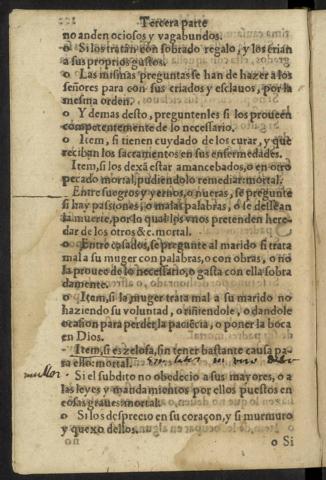 Tercera parte
no anden ociosos y vagabundos.
o Si los tratan con sobrado regalo, y los crian
a sus proprios gustos.
o Las mismas preguntas se han de hazer a los
señores para con sus criados y esclauos, por la
mesma orden.
o Y demas desto, preguntenles si los prouèen
competentemente de lo necessario.
o Item, si tienen cuydado de los curar, y que
reciban los sacramentos en sus enfermedades.
Item, si los dexã estar amancebados, o en otro
pecado mortal, pudiendolo remediar: mortal.
Entre suegros y yernos, o nueras, se pregunte
si hay passiones, o malas palabras, o se dessean
la muerte, por lo qual los vnos pretenden here-
dar de los otros &c. mortal.
o Entre casados, se pregunte al marido si trata
mal a su muger con palabras, o con obras, o no
la prouee de lo necessario, o gasta con ella sobra
damente.
o Item, si la muger trata mal a su marido no
haziendo su voluntad, o riñendole, o dandole
ocasion para perder la paciẽcia, o poner la boca
en Dios.
Item, si es zelosa, sin tener bastante causa pa-
ra ello: mortal.
Si el subdito no obedecio a sus mayores, o a
las leyes y mandamientos por ellos puestos en
cosas graues: mortal.
o Si los desprecio en su coraçon, y si murmuro
y quexo dellos.
o Si